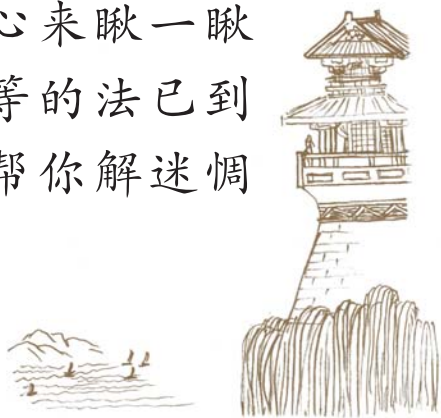 心来瞅一瞅
等的法已到
帮你解迷惆